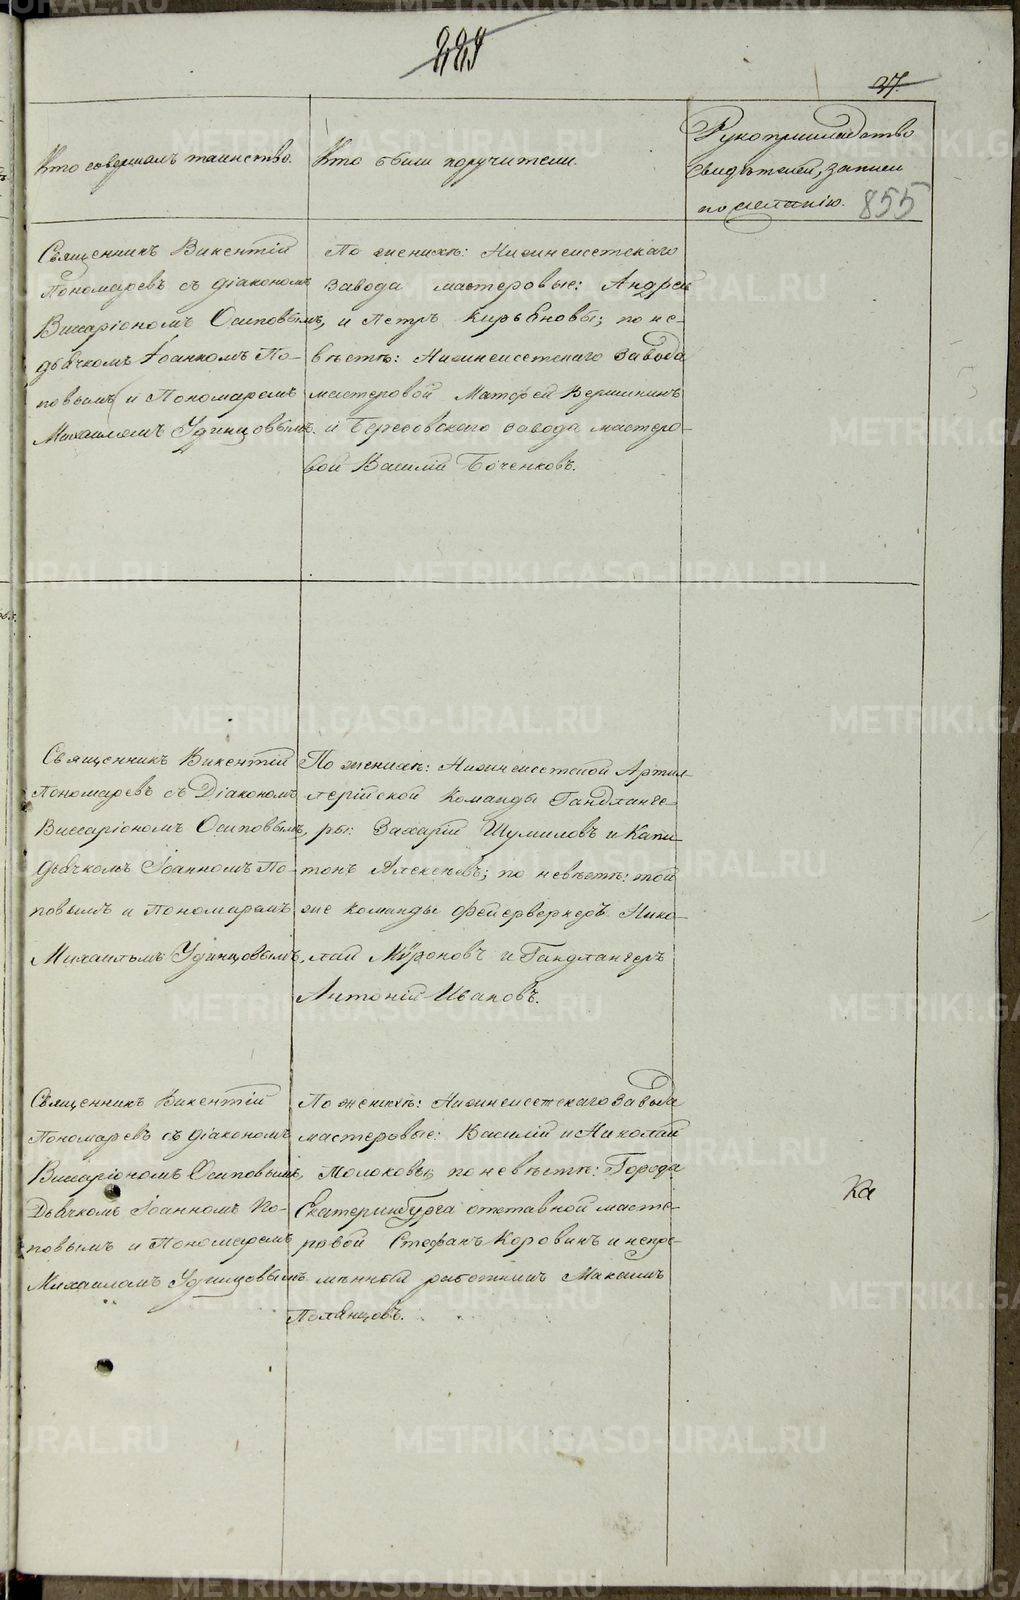 221
37.
Кто совершалъ таинство.
Кто были поручители.
Рукоприкладство
свидѣтелей, записи
по желанію.
855
Священникъ Викентій
Пономаревъ съ діакономъ
Виссаріономъ Осиповымъ,
дьячкомъ Іоанномъ По-
повымъ и Пономаремъ
Михаиломъ Удинцовымъ.
По женихѣ: Нижнеисетскаго
завода мастеровые: Андрей
и Петръ Кирьяновы; по не-
вѣстѣ: Нижнеисетскаго завода
мастеровой Матфей Вершининъ
и Березовскаго завода мастеро-
вой Василій Боченковъ.
Священникъ Викентій
Пономаревъ съ Діакономъ
Виссаріономъ Осиповымъ,
дьячкомъ Іоанномъ По-
повымъ и Пономаремъ
Михаиломъ Удинцовымъ.
По женихѣ: Нижнеисетской Артил-
лерійской Команды Гандланге-
ры: Захарій Шумиловъ и Капи-
тонъ Алексѣевъ; по невѣстѣ: той
же команды фейерверкеръ Нико-
лай Мироновъ и Гандлангеръ
Антоній Ивановъ.
Священникъ Викентій
Пономаревъ съ діакономъ
Виссаріономъ Осиповымъ,
Дьячкомъ Іоанномъ По-
повымъ и Пономаремъ
Михаиломъ Удинцовымъ
По женихѣ: Нижнеисетскаго завода
мастеровые: Василій и Николай
Молоковы; по невѣстѣ: Города
Екатеринбурга отставной масте-
ровой Стефанъ Коровинъ и непре-
мѣнный работникъ Максимъ
Полянцовъ.
Ка
METRIKI.GASO-URAL.RU